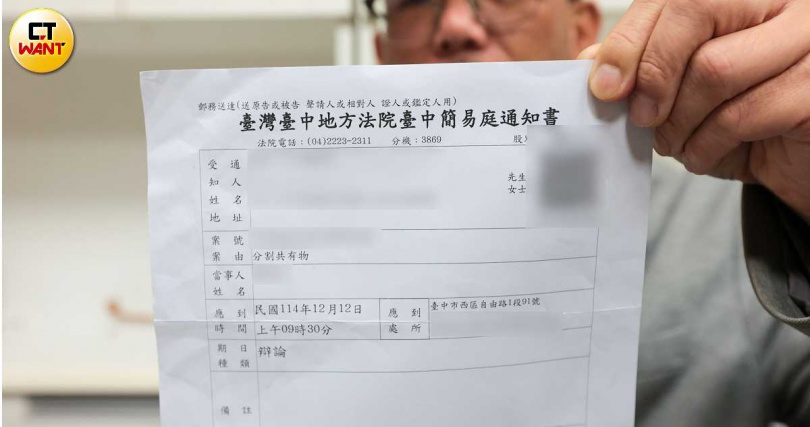 CT
WANT
郵務送達(送原告或被告 聲請人或相對人 證人或鑑定人用)
臺灣臺中地方法院臺中簡易庭通知書
法院電話：(04)2223-2311 分機：3869 股)
受通
知人
姓名
地址
先生
女士
案號
案由 分割共有物
當事人
姓名
應到
時間
民國114年12月12日
上午09時30分
應到
處所
臺中市西區自由路1段91號
期日
種類
辯論
備註